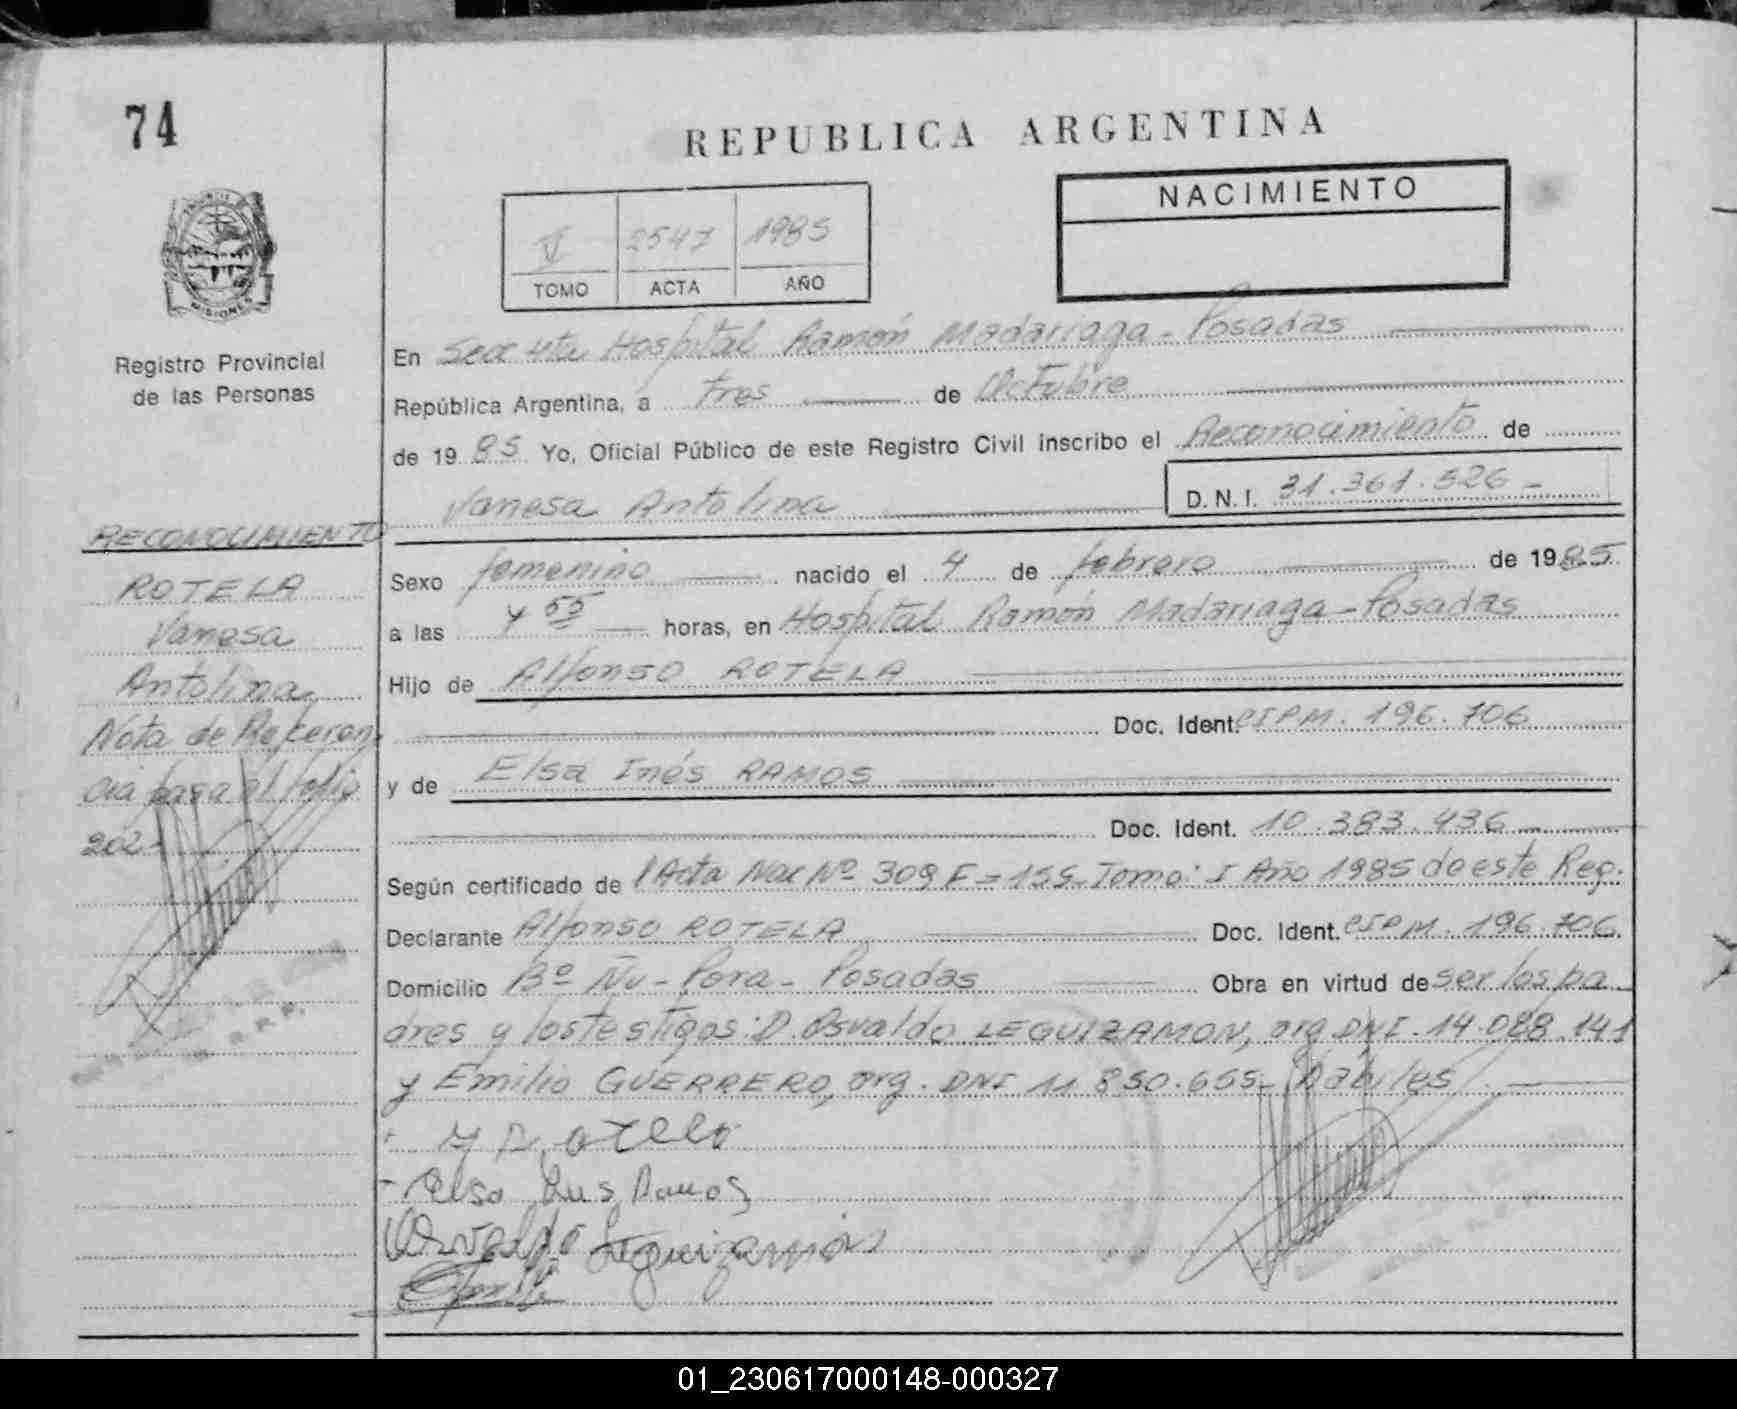 74
REPUBLICA ARGENTINA
NACIMIENTO
V 2547 1985
TOMO ACTA AÑO
MISIONES
Registro Provincial
de las Personas
En Secc 4ta Hospital Ramón Madariaga - Posadas
República Argentina, a tres de Octubre
de 1985 Yo, Oficial Público de este Registro Civil inscribo el Reconocimiento de
Vanesa Antolina D.N.I. 31.361.526 -
RECONOCIMIENTO
ROTELA
Vanesa
Antolina
Nota de Referen
cia pasa al folio
202-
Sexo femenino nacido el 4 de febrero de 1985
a las 4 55 horas, en Hospital Ramón Madariaga - Posadas
Hijo de Alfonso ROTELA
Doc. Ident. CIPM. 196.706
y de Elsa Inés RAMOS
Doc. Ident. 10.383.436
Según certificado de Acta Nac Nº 309 F=155 Tomo: I Año 1985 de este Reg.
Declarante Alfonso ROTELA Doc. Ident. CIPM. 196.706
Domicilio Bº Ñu-Pora - Posadas Obra en virtud de ser los pa
dres y los testigos: D. Osvaldo LEGUIZAMON, arg DNI. 14.088.141
y Emilio GUERRERO, arg. DNI 11.850.655- Dábiles
Elsa Ines Ramos
Osvaldo Leguizamón
01_230617000148-000327